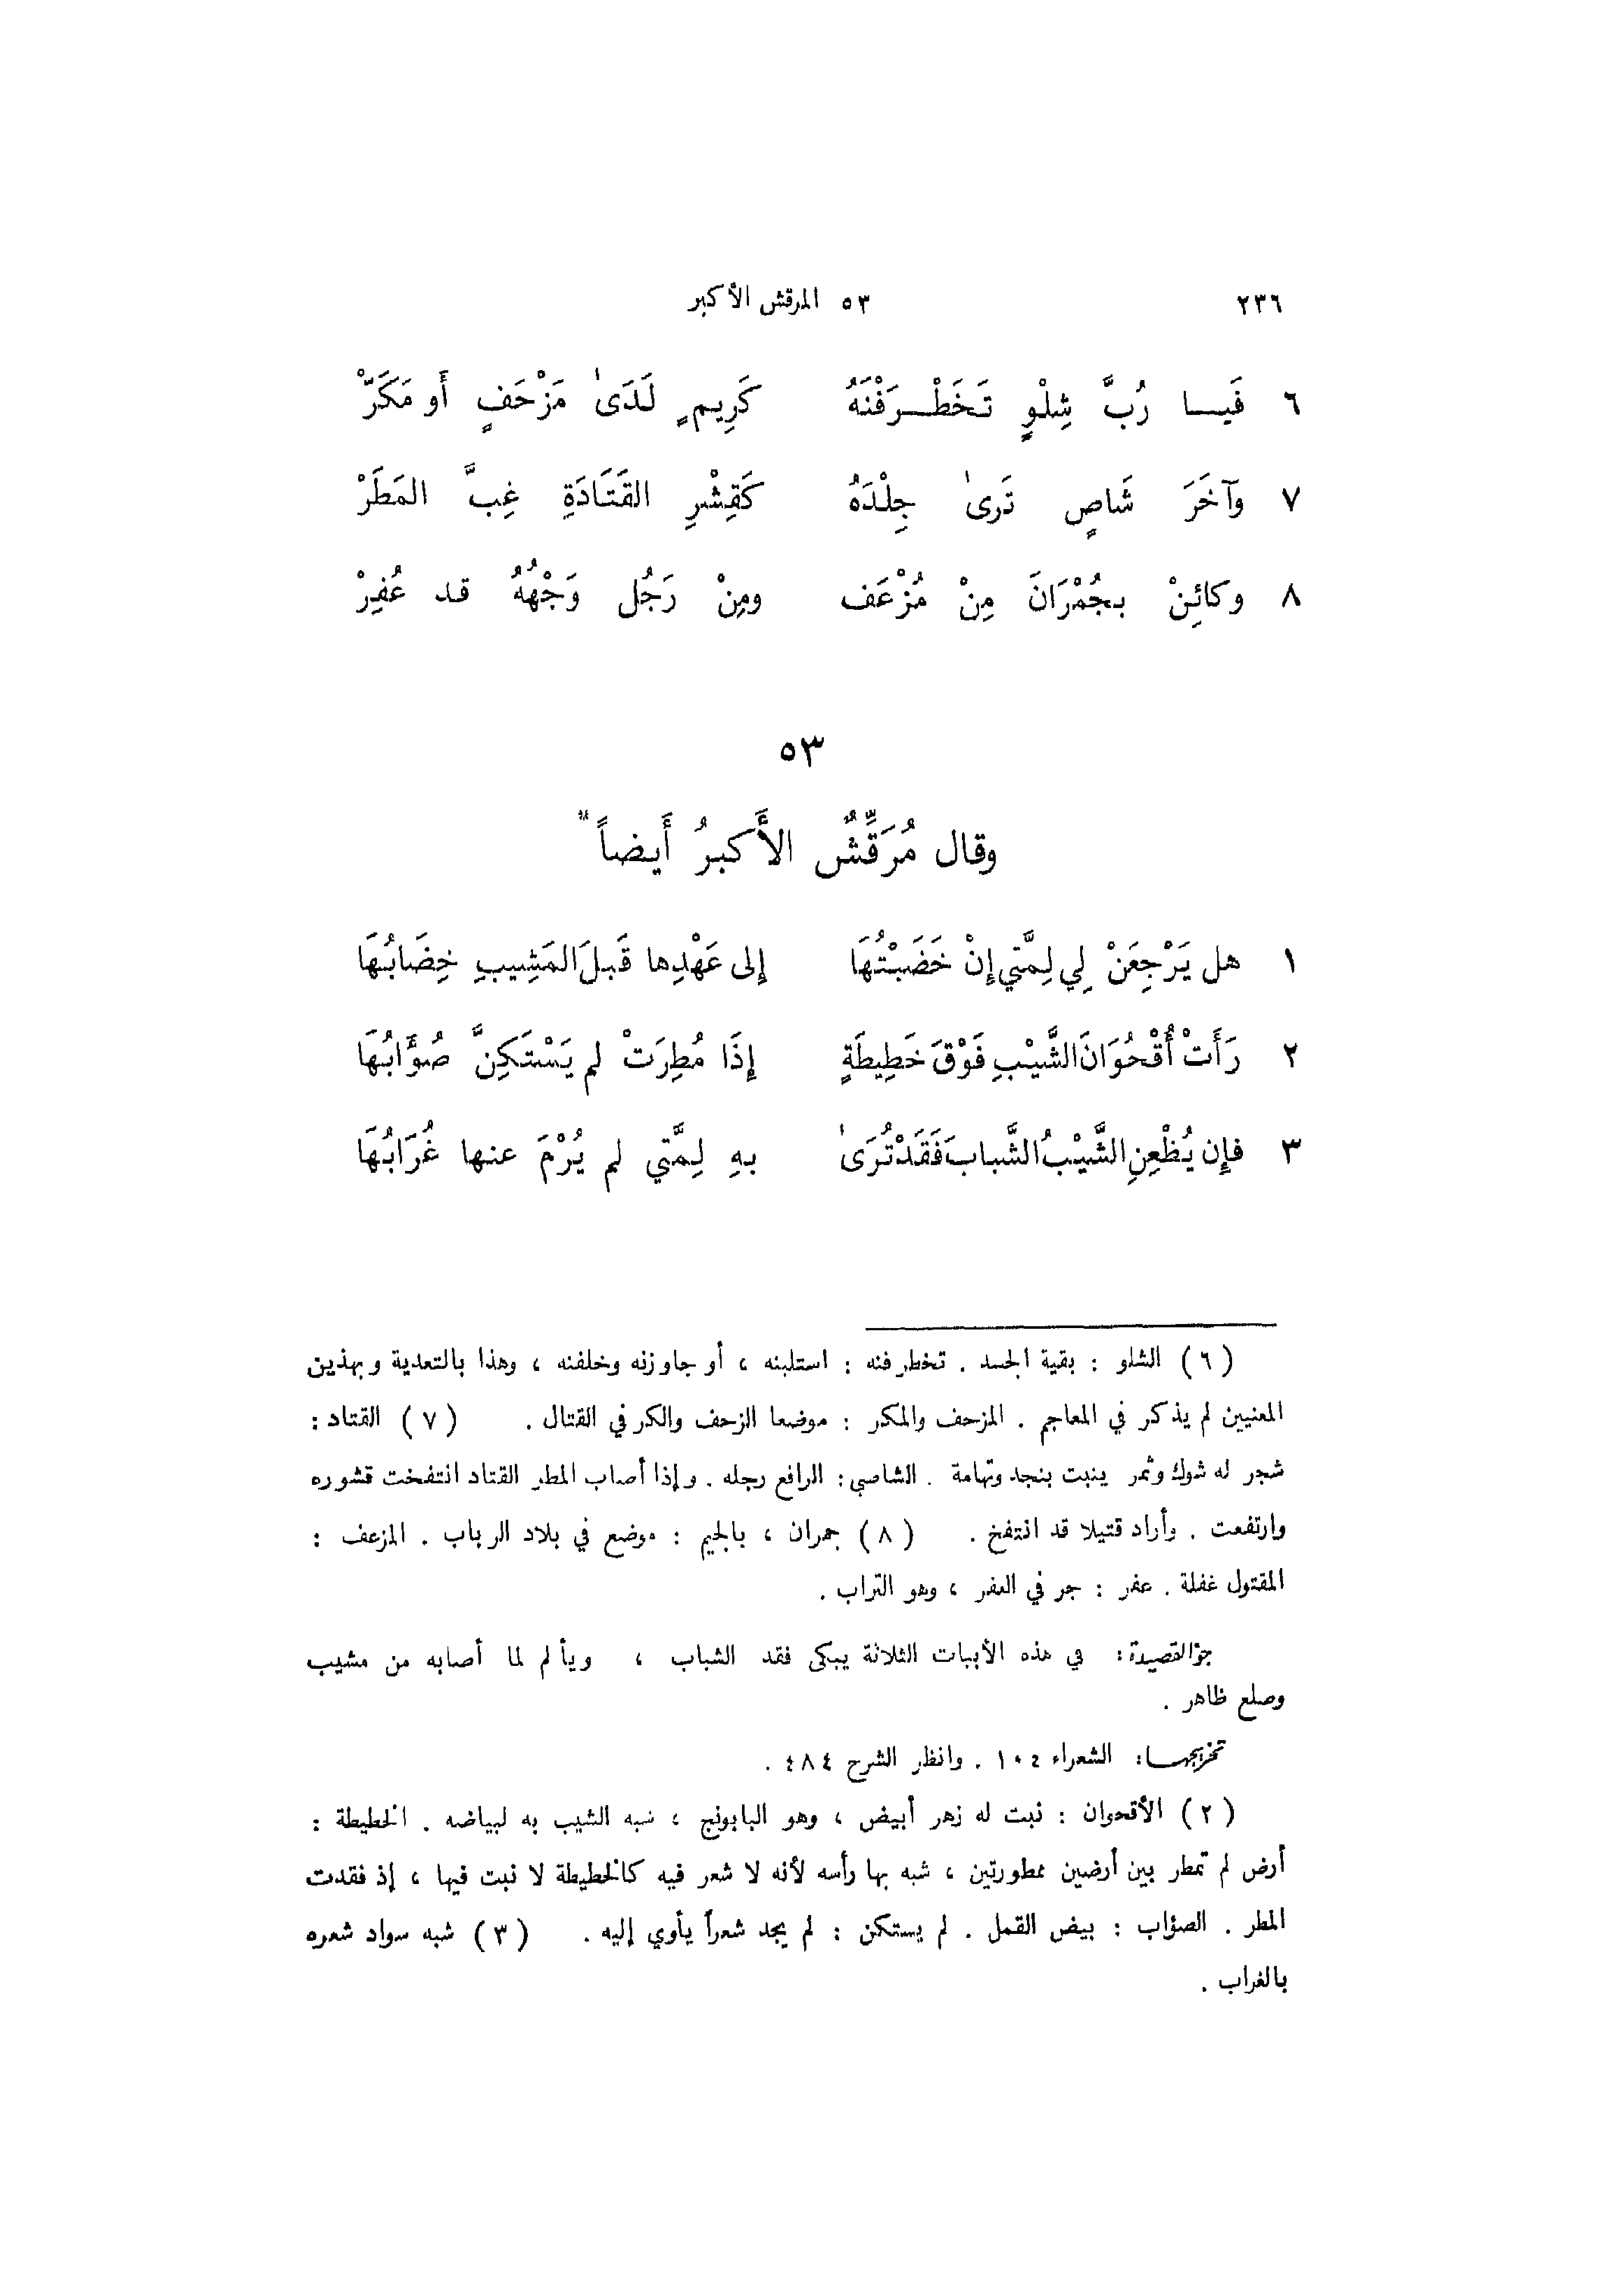 ٢٣٦ ٥٣ المرقش الأكبر
٦ فَيــا رُبَّ شِلْوٍ تَخَطْـرَفْنَهُ كَرِيمٍ لَدَىٰ مَزْحَفٍ أَو مَكَرّْ
٧ وآخَرَ شَاصٍ تَرىٰ جِلْدَهُ كَقِشْرِ القَتَادَةِ غِبَّ المَطَرْ
٨ وكائِنْ بجُمْرَانَ مِنْ مُزْعَف ومِنْ رَجُل وَجْهُهُ قد عُفِرْ
٥٣
وقال مُرَقِّشٌ الأَكبرُ أَيضاً*
١ هل يَرْجِعَنْ لِي لِمَّتِي إِنْ خَضَبْتُهَا إِلى عَهْدِها قَبلَ المَشِيبِ خِضَابُهَا
٢ رَأَتْ أُقْحُوَانَ الشَّيْبِ فَوْقَ خَطِيطَةٍ إِذَا مُطِرَتْ لم يَسْتَكِنَّ صُؤَابُهَا
٣ فإِن يُظْعِنِ الشَّيْبُ الشَّبابَ فَقَدْ تُرَىٰ بهِ لِمَّتي لم يُرْمَ عنها غُرَابُهَا
(٦) الشلو : بقية الجسد . تخطرفنه : استلبنه ، أو جاوزنه وخلفنه ، وهذا بالتعدية وبهذين
المعنيين لم يذكر في المعاجم . المزحف والمكر : موضعا الزحف والكر في القتال . (٧) القتاد :
شجر له شوك وثمر ينبت بنجد وتهامة . الشاصي : الرافع رجله . وإذا أصاب المطر القتاد انتفخت قشوره
وارتفعت . وأراد قتيلا قد انتفخ . (٨) جمران ، بالجيم : موضع في بلاد الرباب . المزعف :
المقتول غفلة . عفر : جر في العفر ، وهو التراب .
جو القصيدة : في هذه الأبيات الثلاثة يبكى فقد الشباب ، ويألم لما أصابه من مشيب
وصلع ظاهر .
تخريجهـا : الشعراء ١٠٤ . وانظر الشرح ٤٨٤ .
(٢) الأقحوان : نبت له زهر أبيض ، وهو البابونج ، شبه الشيب به لبياضه . الخطيطة :
أرض لم تمطر بين أرضين ممطورتين ، شبه بها رأسه لأنه لا شعر فيه كالخطيطة لا نبت فيها ، إذ فقدت
المطر . الصؤاب : بيض القمل . لم يستكن : لم يجد شعراً يأوي إليه . (٣) شبه سواد شعره
بالغراب .